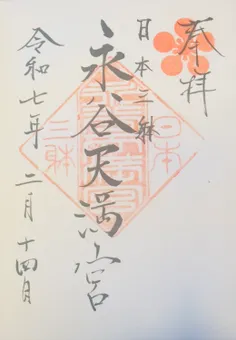 奉拝
日本三躰
永谷天満宮
令和七年 二月 十四日
日本
三躰